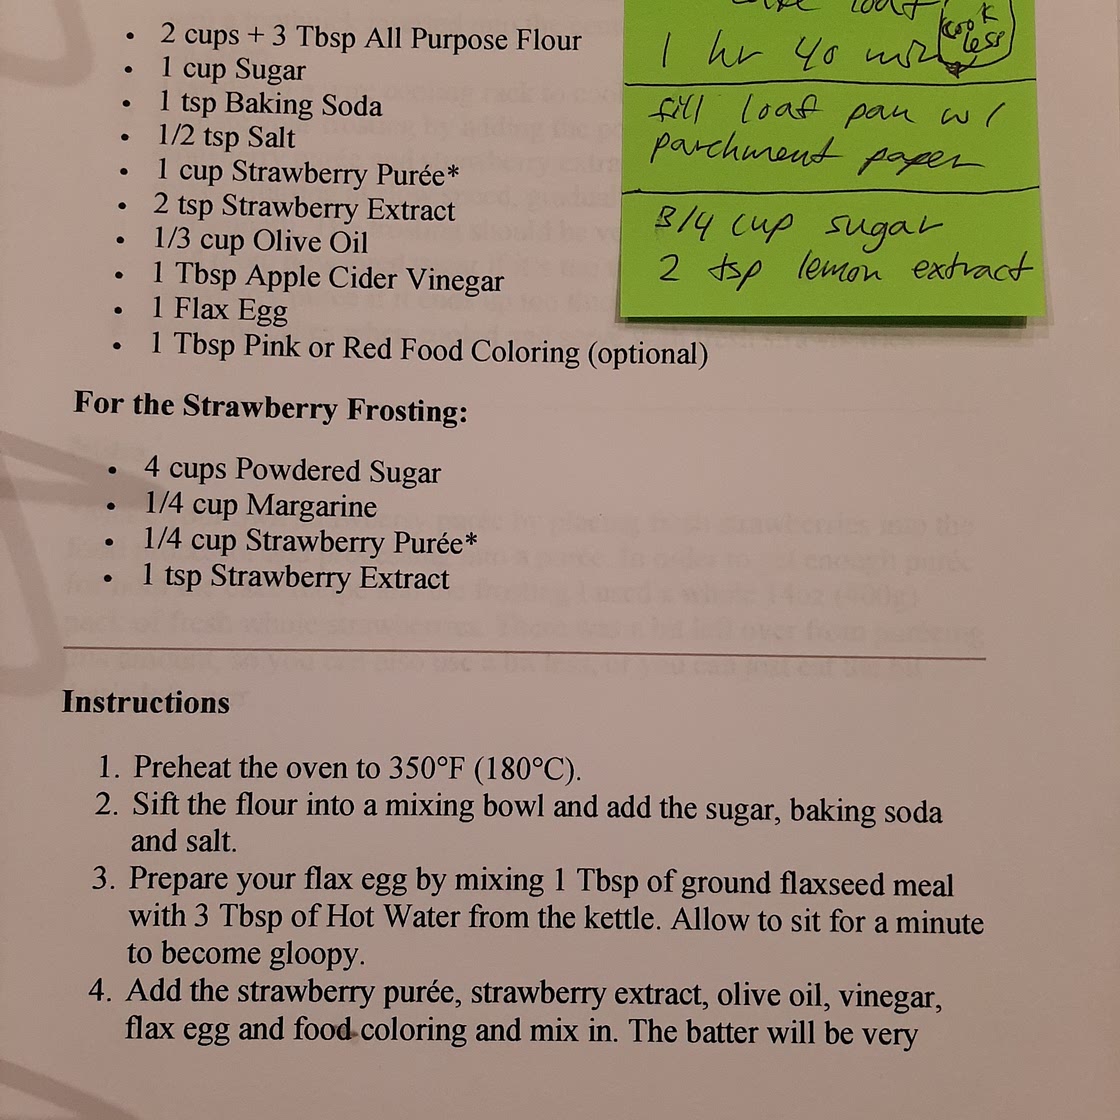 2 cups + 3 Tbsp All Purpose Flour
1 cup Sugar
1 tsp Baking Soda
1/2 tsp Salt
1 cup Strawberry Purée*
2 tsp Strawberry Extract
1/3 cup Olive Oil
1 Tbsp Apple Cider Vinegar
1 Flax Egg
1 Tbsp Pink or Red Food Coloring (optional)
loaf
1 hr 40 min
cook
less
fill loaf pan w/
parchment paper
3/4 cup sugar
2 tsp lemon extract
For the Strawberry Frosting:
4 cups Powdered Sugar
1/4 cup Margarine
1/4 cup Strawberry Purée*
1 tsp Strawberry Extract
Instructions
1. Preheat the oven to 350°F (180°C).
2. Sift the flour into a mixing bowl and add the sugar, baking soda
and salt.
3. Prepare your flax egg by mixing 1 Tbsp of ground flaxseed meal
with 3 Tbsp of Hot Water from the kettle. Allow to sit for a minute
to become gloopy.
4. Add the strawberry purée, strawberry extract, olive oil, vinegar,
flax egg and food coloring and mix in. The batter will be very